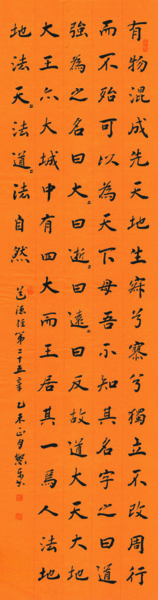 有物混成先天地生寂兮寥兮獨立不改周行
而不殆可以為天下母吾不知其名字之曰道
強為之名曰大〻曰逝〻曰遠〻曰反故道大天大地
大王亦大域中有四大而王居其一焉人法地
地法天〻法道〻法自然
道德經第二十五章 乙未正月